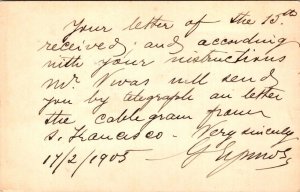 Your letter of the 15th
received; and according
with your instructions
Mr. Vivas will send
you by telegraph an letter
the cablegram from
S. Francisco. Very sincerely
17/2/1905